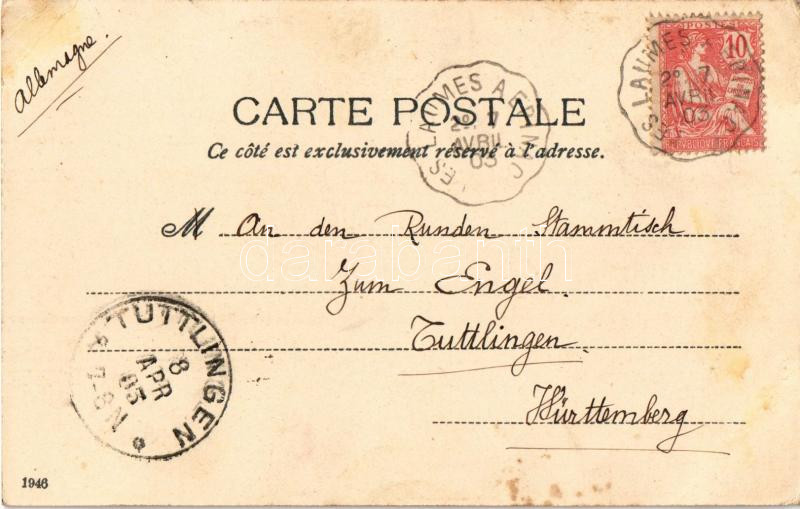 Allemagne.
POSTES
10
REPUBLIQUE FRANÇAISE
LES LAUMES A
2º 7
AVRIL
03
LES LAUMES A
2º 7
AVRIL
03
CARTE POSTALE
Ce côté est exclusivement réservé à l'adresse.
M An den Runden Stammtisch
Zum Engel.
Tuttlingen.
Württemberg
TUTTLINGEN
8
APR
03
7-8 N
darabanth
1946